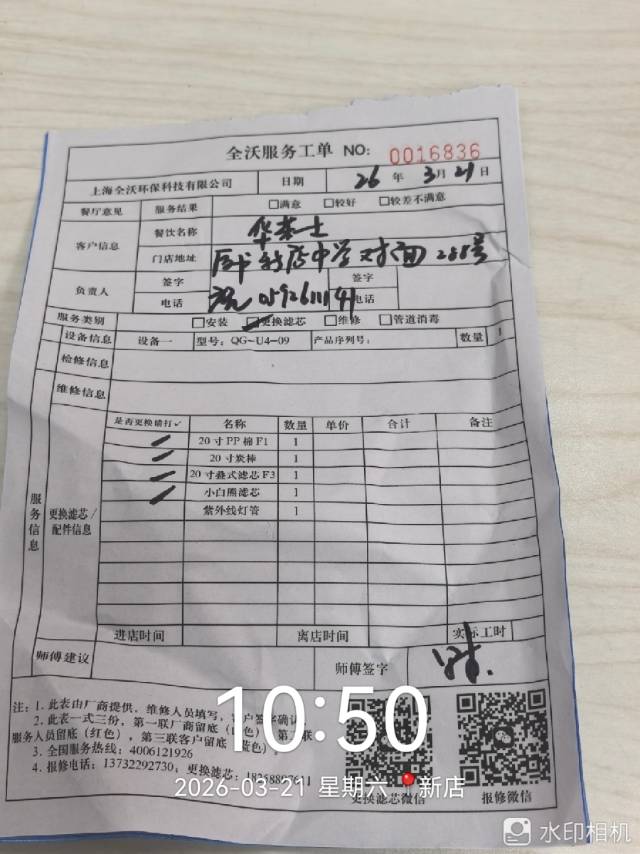 全沃服务工单 NO: 0016836
上海全沃环保科技有限公司 日期 26 年 3 月 21 日
餐厅意见 服务结果 □满意 □较好 □较差不满意
客户信息 餐饮名称 华莱士
门店地址 新店中学对面288号
负责人 签字 签字
电话 电话
服务类别 □安装 □更换滤芯 □维修 □管道消毒
设备信息 设备一 型号: QG-U4-09 产品序列号: 数量 1
检修信息
维修信息
服务信息 更换滤芯/配件信息
是否更换请打✓ 名称 数量 单价 合计 备注
20寸PP棉F1 1
20寸炭棒 1
20寸叠式滤芯F3 1
小白熊滤芯 1
紫外线灯管 1
进店时间 离店时间 实际工时
师傅建议 师傅签字
注: 1. 此表由厂商提供, 维修人员填写, 客户签字确认
2. 此表一式三份, 第一联厂商留底
服务人员留底(红色), 第三联客户留底
3. 全国服务热线: 4006121926
4. 报修电话: 13732292730; 更换滤芯:
更换滤芯微信 报修微信
10:50
2026-03-21 星期六 新店
水印相机